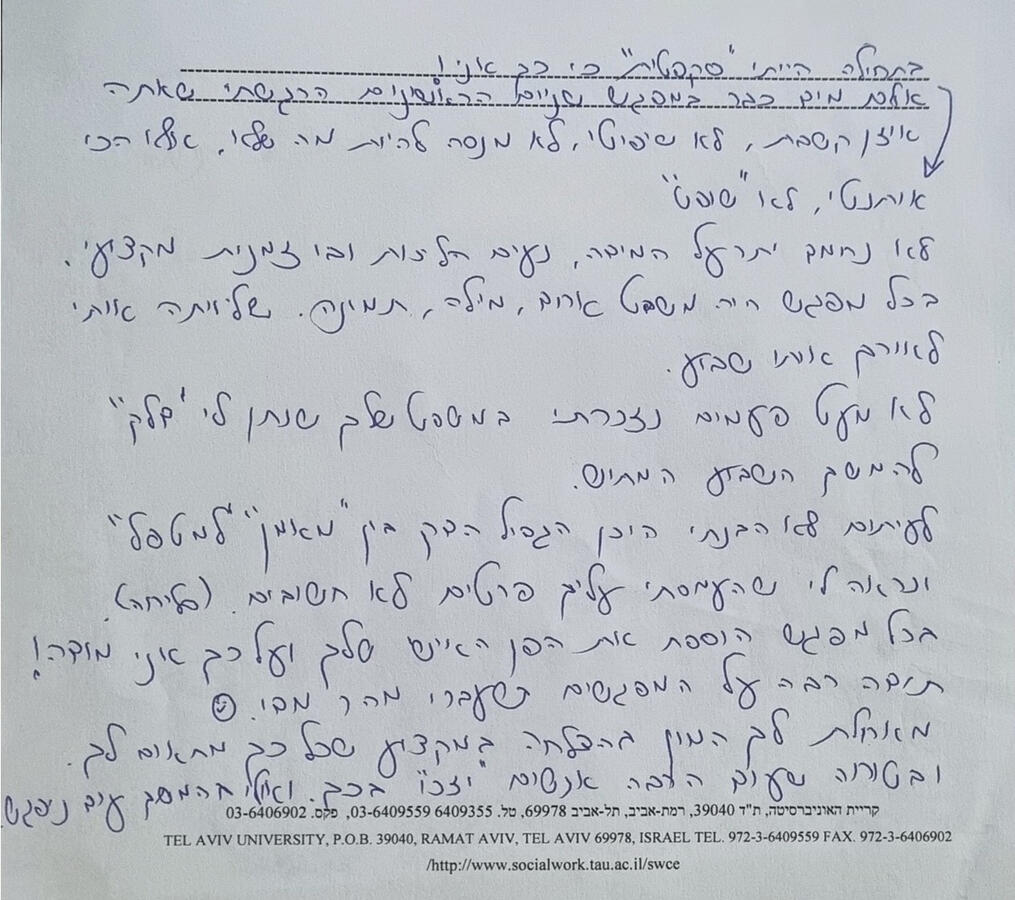 בתחילה הייתי "סקפטית" כי כך אני!
אולם מיד כבר במפגש שניים הראשונים הרגשתי שאתה
איזן קשבת, לא שיפוטי, לא מנסה להיות מה שלא, אלא הכי
אותנטי, לא "שופט"
לא נחמד יתר על המידה, נעים הליכות ובו זמנית מקצועי.
בכל מפגש היה משפט אחד, מילה, תמונה. שליוותה אותי
לאורך אותו שבוע.
לא מעט פעמים נזכרתי במשפט שלך שנתן לי "דלק"
להמשך השבוע המתיש.
לעיתים לא הבנתי היכן הגבול הדק בין "מאמן" ל"מטפל"
ונראה לי שהעמסתי עליך פרטים לא חשובים. (סליחה)
בכל מפגש הוספת את הפן האישי שלך ועל כך אני מודה!
תודה רבה על המפגשים שעברו מהר מדי. ☺
מאחלת לך המון הצלחה במקצוע שכל כך מתאים לך.
ובטוחה שעוד הרבה אנשים "יזכו" בכך. ואולי בהמשך עוד ניפגש.
קריית האוניברסיטה, ת"ד 39040, רמת-אביב, תל-אביב 69978, טל. 6409355 03-6409559, פקס. 03-6406902
TEL AVIV UNIVERSITY, P.O.B. 39040, RAMAT AVIV, TEL AVIV 69978, ISRAEL TEL. 972-3-6409559 FAX. 972-3-6406902
/http://www.socialwork.tau.ac.il/swce